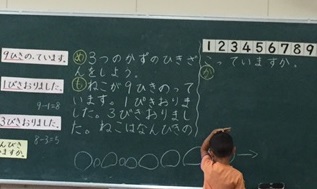 9ひきの、ています。
1ぴきおりました。
9-1=8
3びきおりました。
8-3=5
んびき
ますか。
め 3つのかずのひきざ
んをしよう。
も ねこが9ひきのって
います。1ぴきおりま
した。3びきおりまし
た。ねこはなんびきの
1 2 3 4 5 6 7 8 9
っていますか。